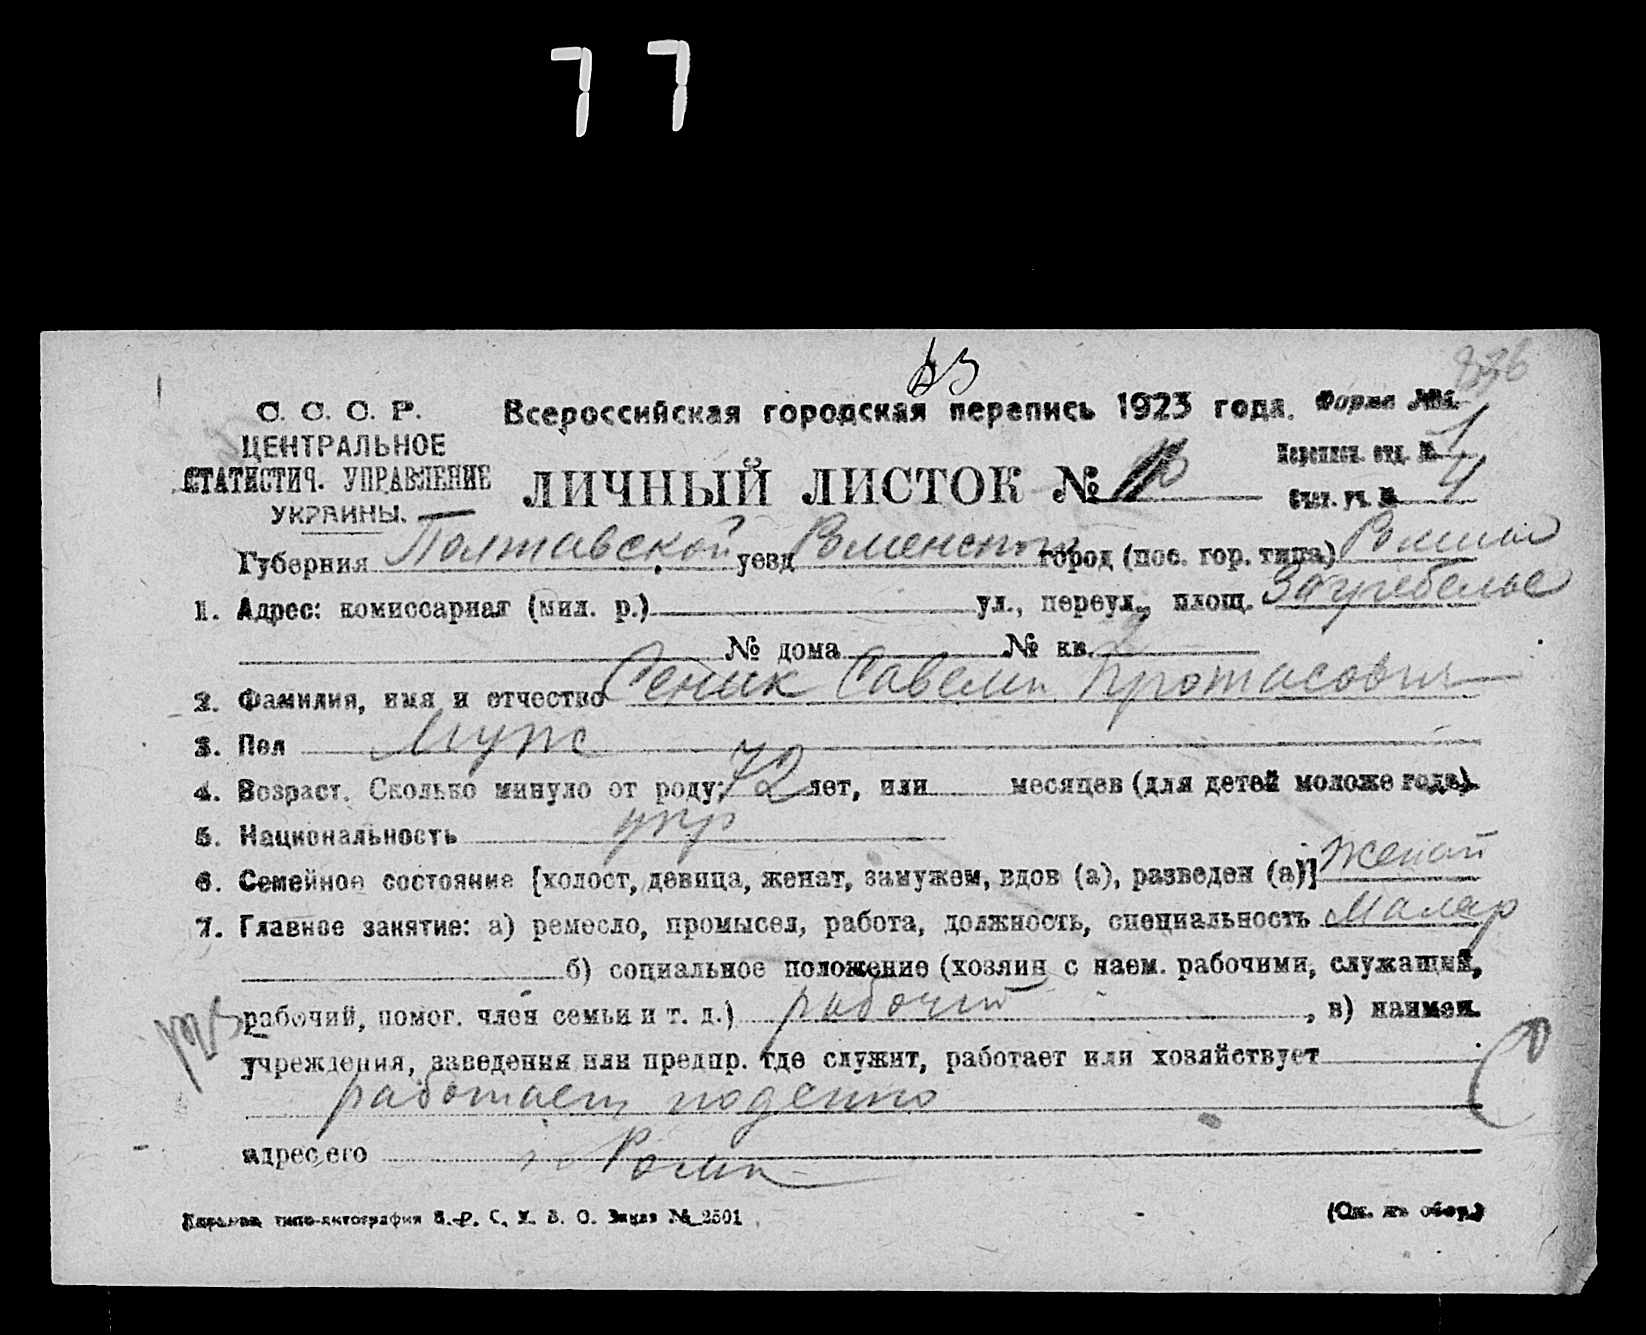 77
63
836
С. С. С. Р.
ЦЕНТРАЛЬНОЕ
СТАТИСТИЧ. УПРАВЛЕНИЕ
УКРАИНЫ.
Всероссийская городская перепись 1923 года. Форма №1.
ЛИЧНЫЙ ЛИСТОК №
Переписн. отд. № 1
Счет. уч. № 4
Губерния Полтавской уезд Роменского город (пос. гор. типа) Ромны
1. Адрес: комиссариат (мил. р.) ул., переул., площ. Загребелье
№ дома № кв. 2
2. Фамилия, имя и отчество Сеник Савели Протасович
3. Пол Муж
4. Возраст. Сколько минуло от роду: 72 лет, или месяцев (для детей моложе года).
5. Национальность укр
6. Семейное состояние [холост, девица, женат, замужем, вдов (а), разведен (а)] Женат
7. Главное занятие: а) ремесло, промысел, работа, должность, специальность Маляр
б) социальное положение (хозяин с наем. рабочими, служащий,
рабочий, помог. член семьи и т. д.) рабочий , в) наимен.
учреждения, заведения или предпр. где служит, работает или хозяйствует
работает поденно
адрес его г. Ромн
типо-литография Заказ № 2501
(См. на обор.)